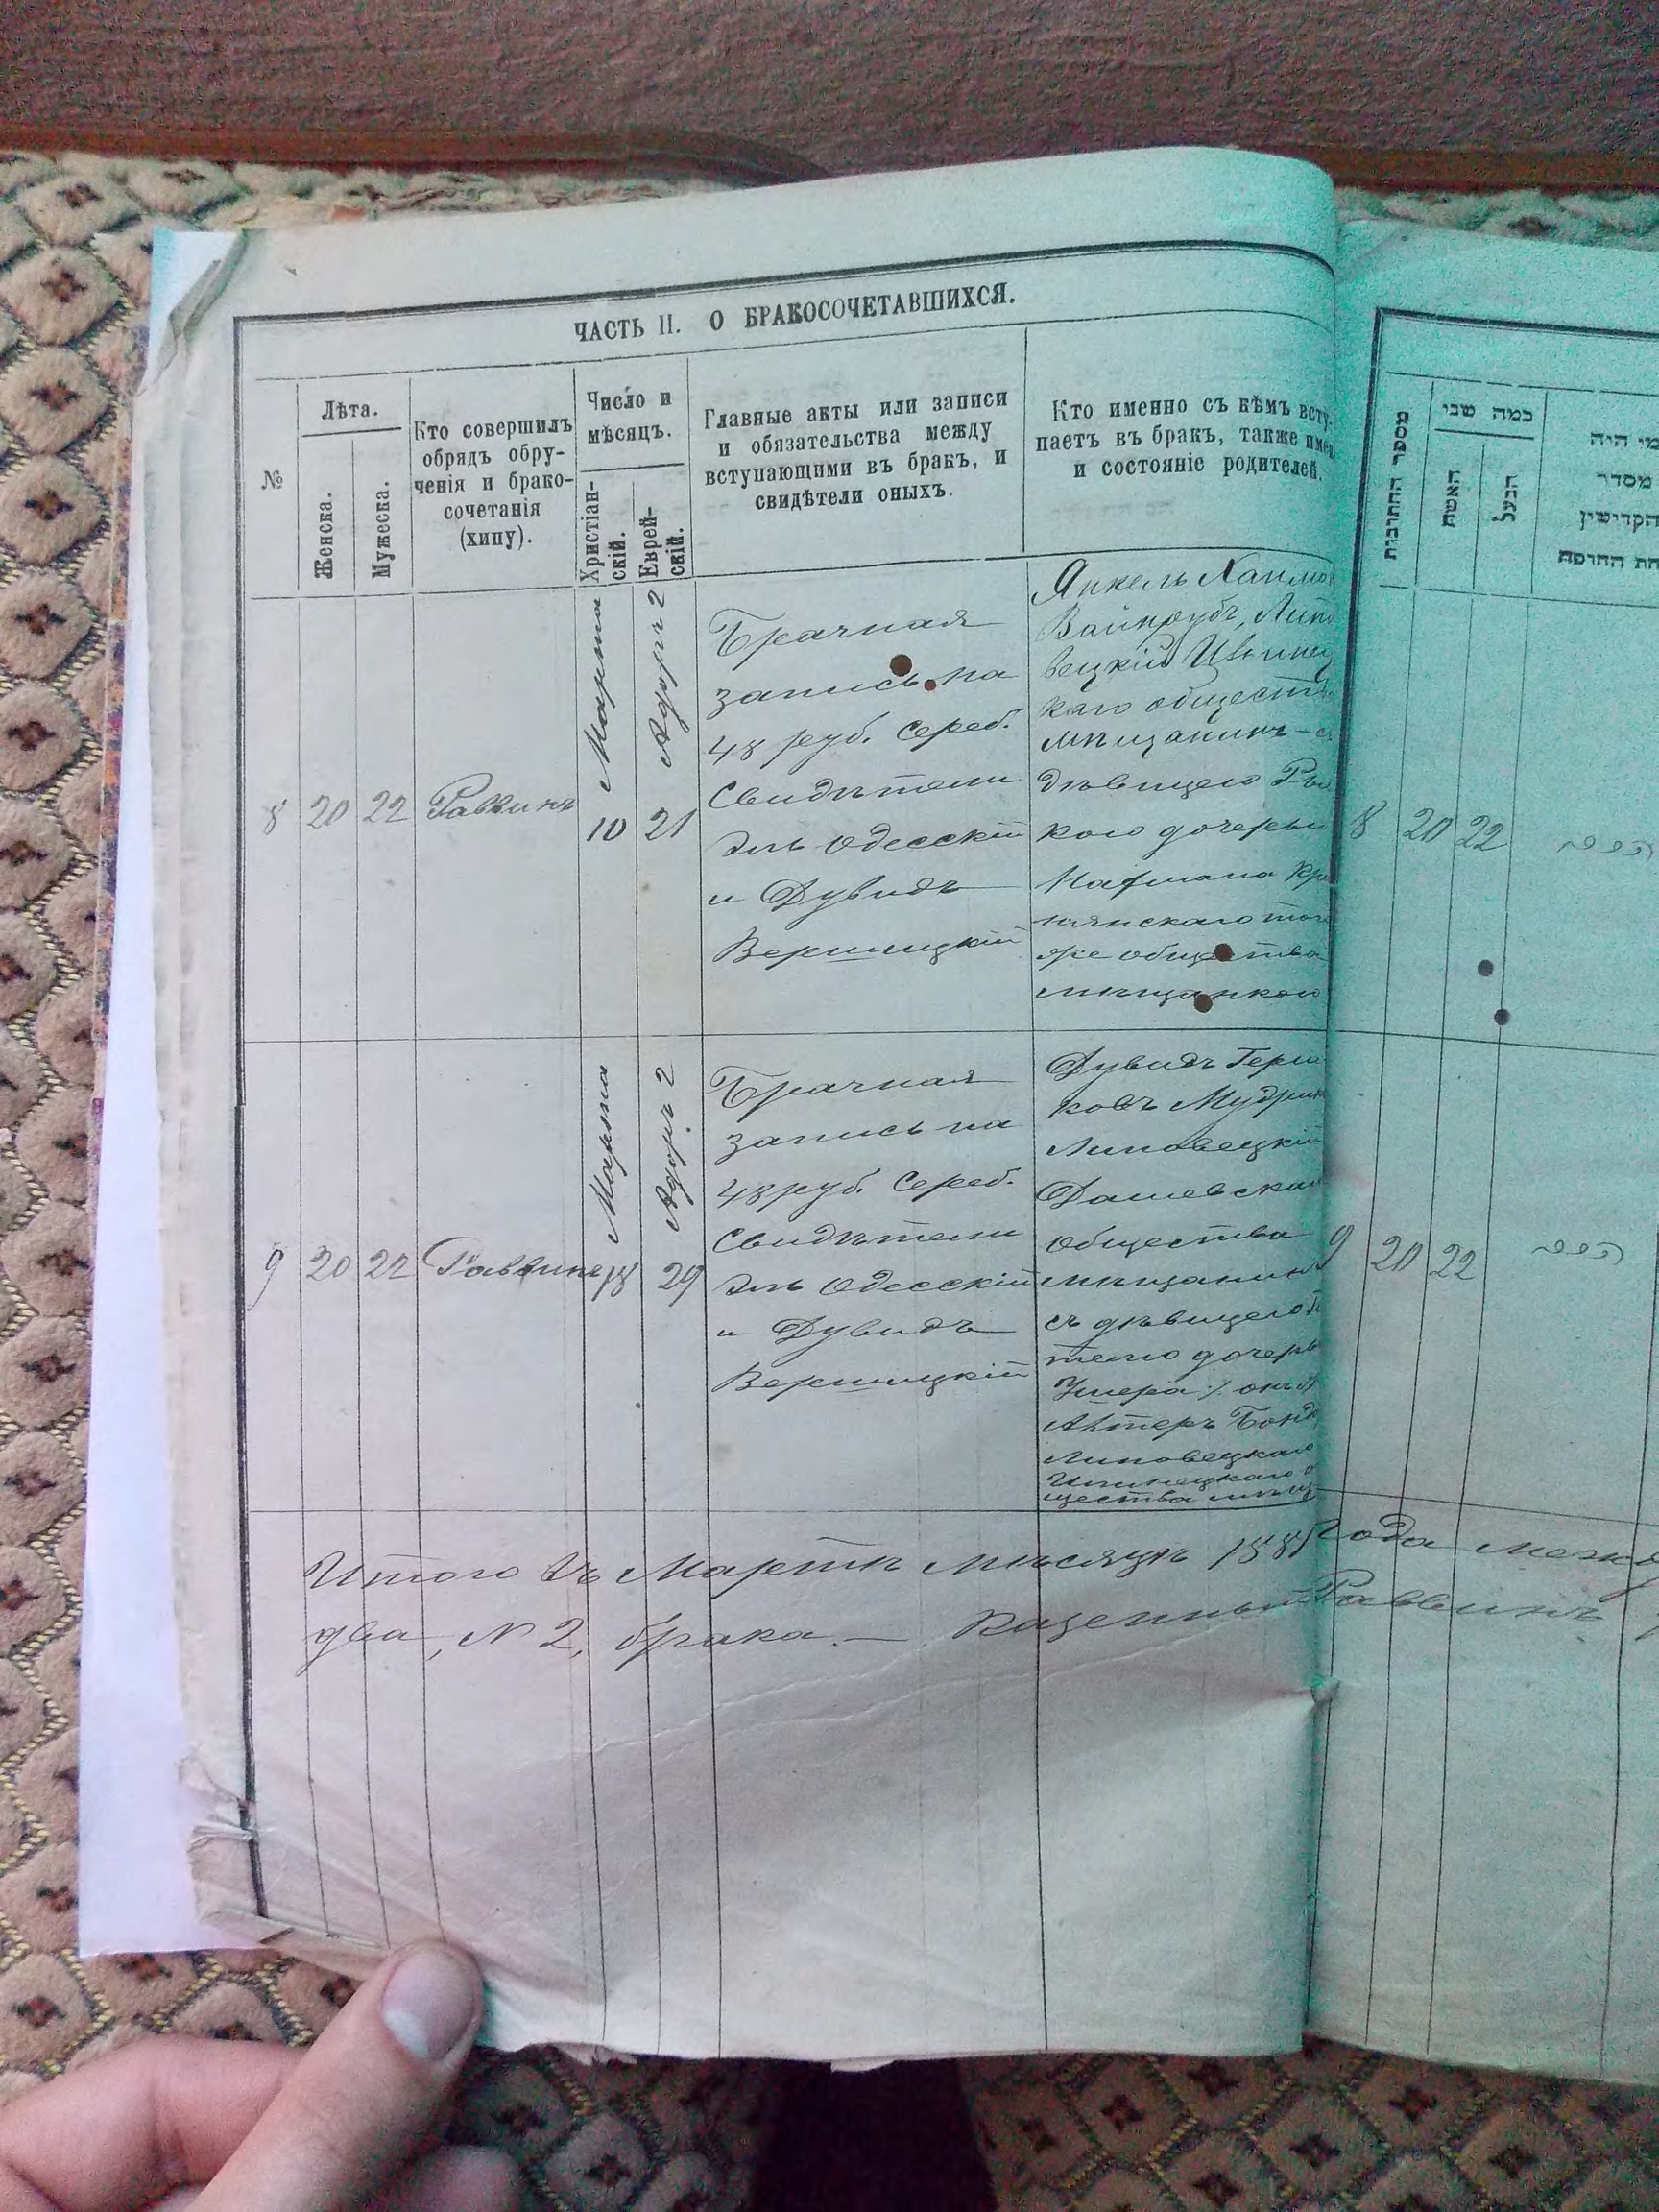 ЧАСТЬ II. О БРАКОСОЧЕТАВШИХСЯ.
№
Лѣта.
Женска.
Мужеска.
Кто совершилъ
обрядъ обру-
ченія и брако-
сочетанія
(хипу).
Число и
мѣсяцъ.
Христіан-
скій.
Еврей-
скій.
Главные акты или записи
и обязательства между
вступающими въ бракъ, и
свидѣтели оныхъ.
Кто именно съ кѣмъ всту-
паетъ въ бракъ, также име
и состояніе родителей.
8
20
22
Раввинъ
Марта
10
Адоръ 2
21
Брачная
запись на
48 руб. Сереб.
Свидѣтели
Эль Одесскій
и Дувидъ
Вершицкій
Янкель Хаимо
Вайнрубъ, Липо
вецкій
каго обществ
мѣщанинъ - с
дѣвицею
кою дочерью
Нафмана
нянскаго того
же общества
мѣщанкою
9
20
22
Раввинъ
Марта
18
Адоръ 2
29
Брачная
запись на
48 руб. Сереб.
Свидѣтели
Эль Одесскій
и Дувидъ
Вершицкій
Дувидъ Герш
ковъ Мудрик
Липовецкій
Дашевска
общества
мѣщанин
съ дѣвицею
телю дочерь
Умера
Липовецкаго
щества мѣщ
Итого въ Мартѣ мѣсяцѣ 1881 года
два, № 2, брака. — Казенный Раввинъ
מספר החתונות
כמה שני
האשה
הבעל
מי היה
מסדר
הקדישין
תחת החופה
8
20
22
9
20
22